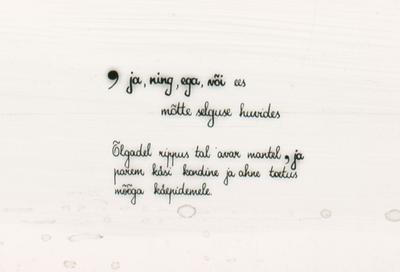 , ja, ning, ega, või ees
mõtte selguse huvides
Õlgadel rippus tal avar mantel, ja
parem käsi kondine ja ahne toetus
mõõga käepidemele.